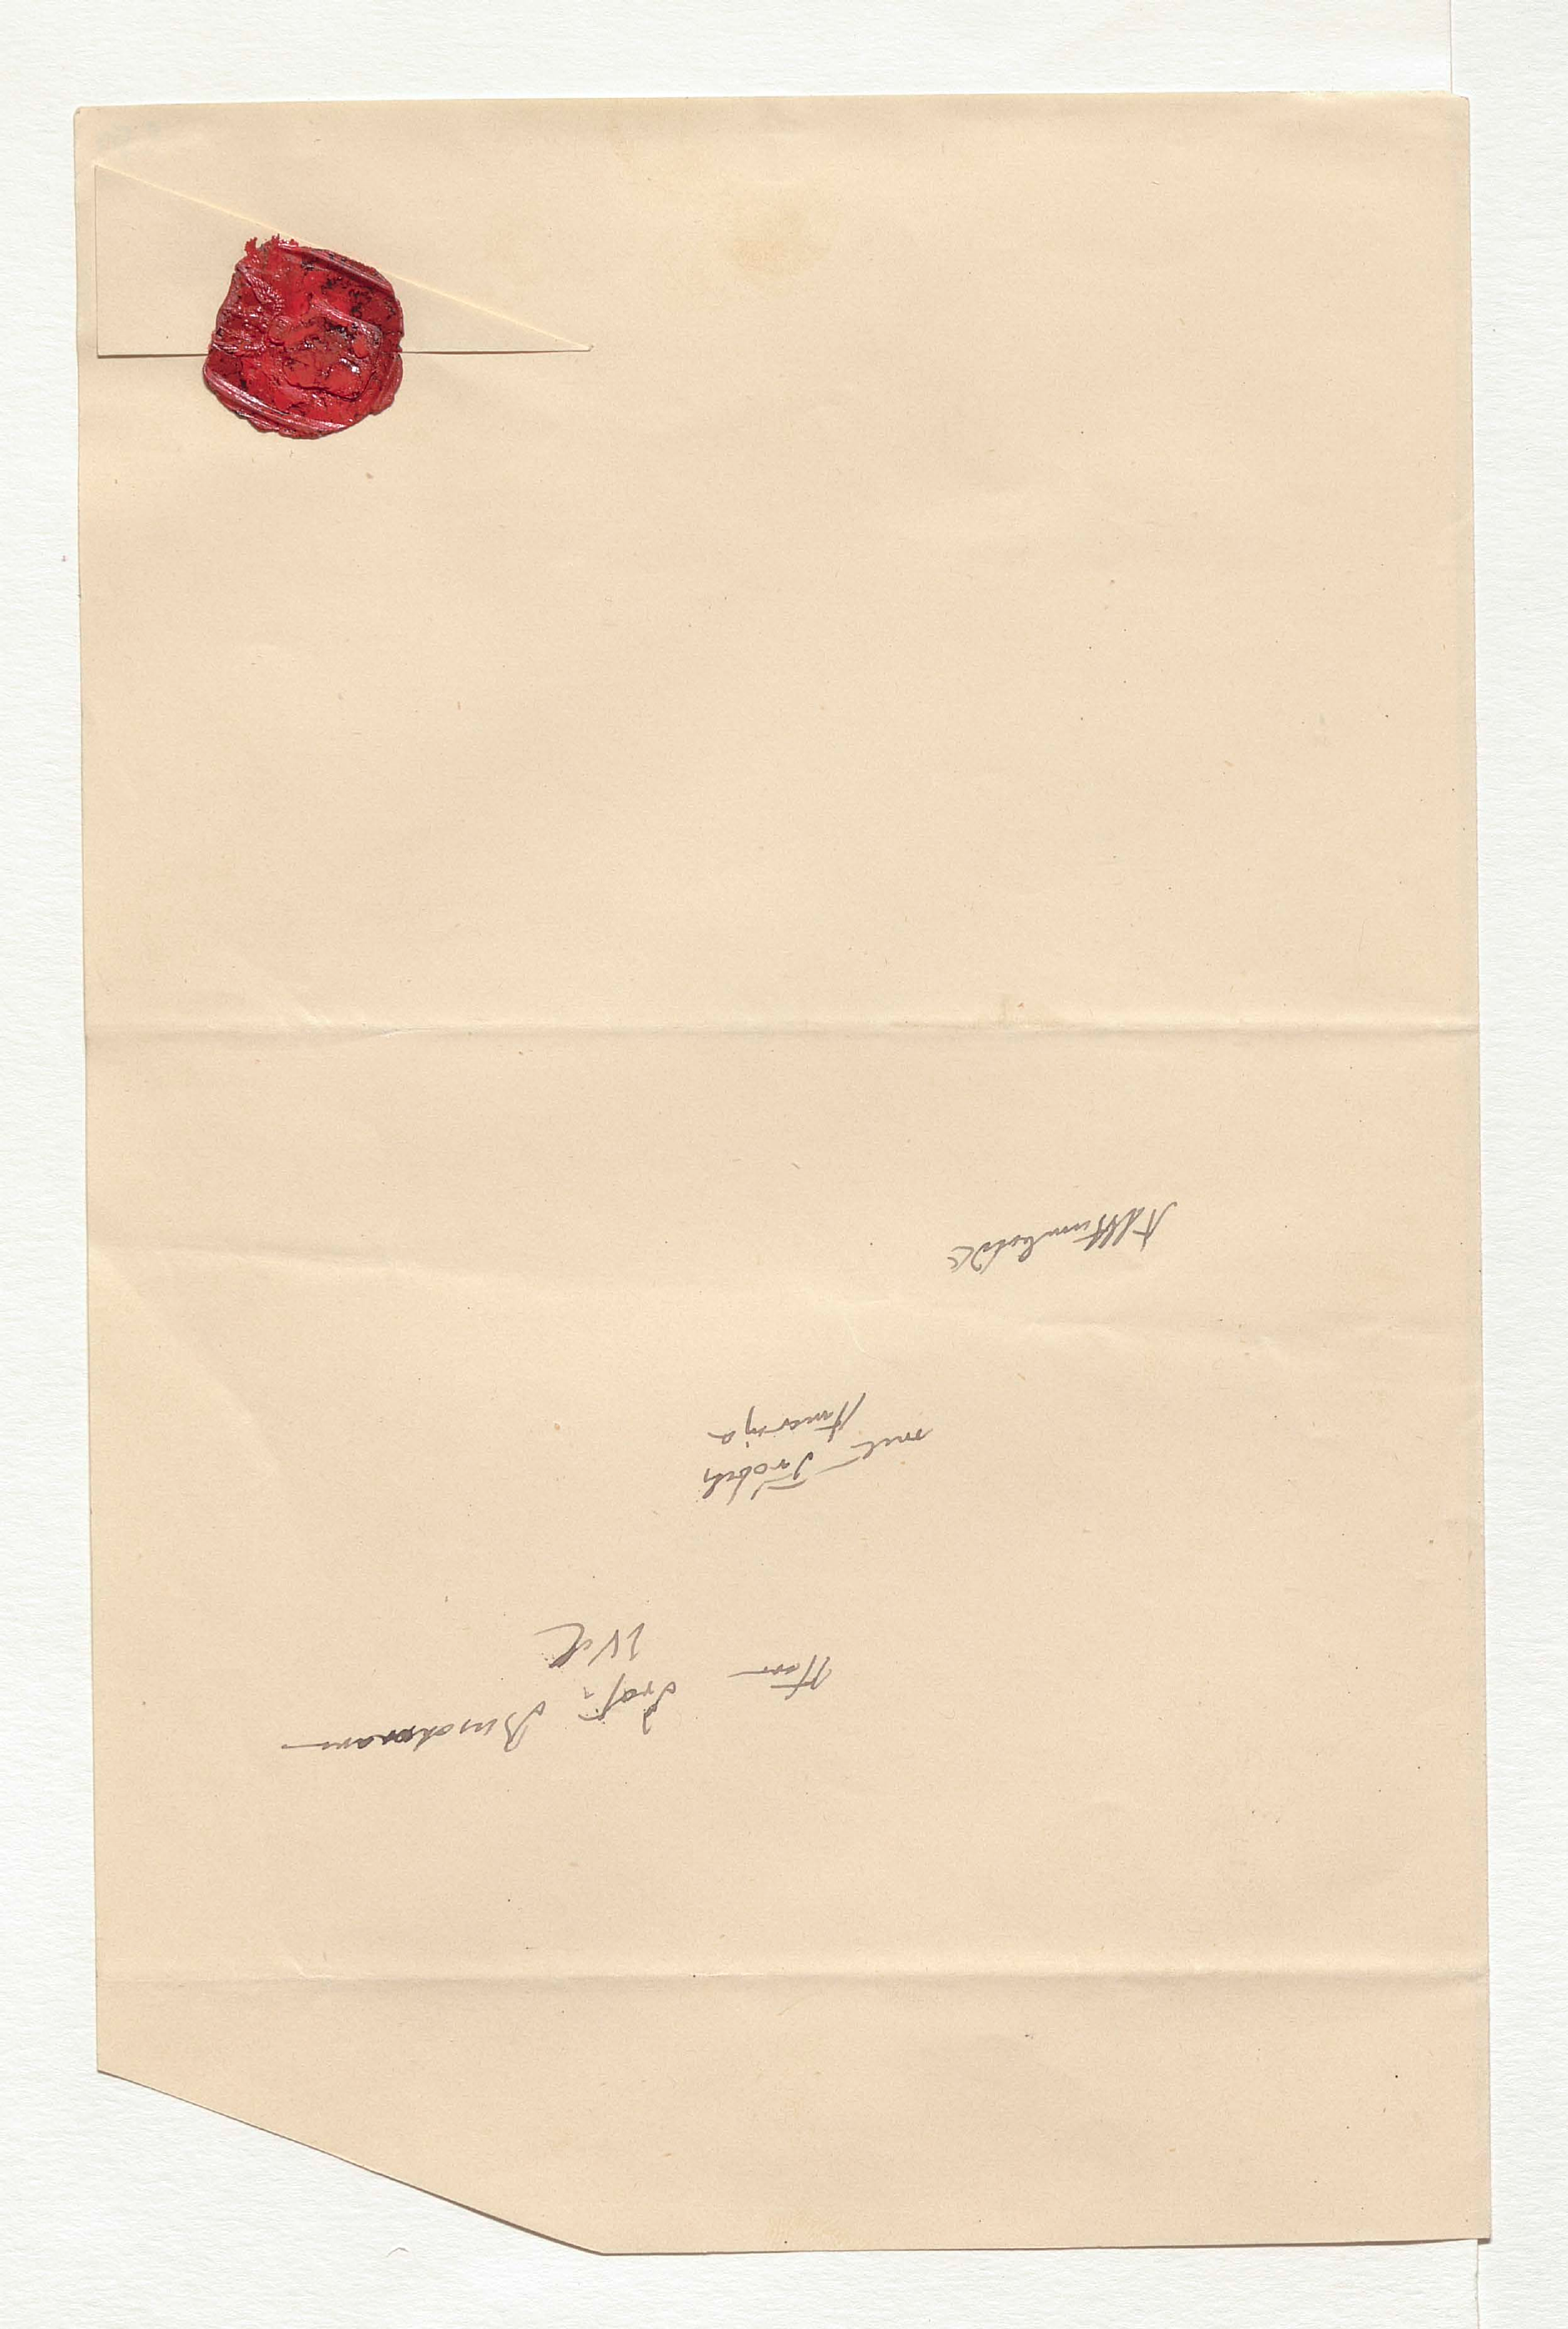 Herrn
Prof. Buschmann
mit Fröbels
Amerika
AvHumboldt